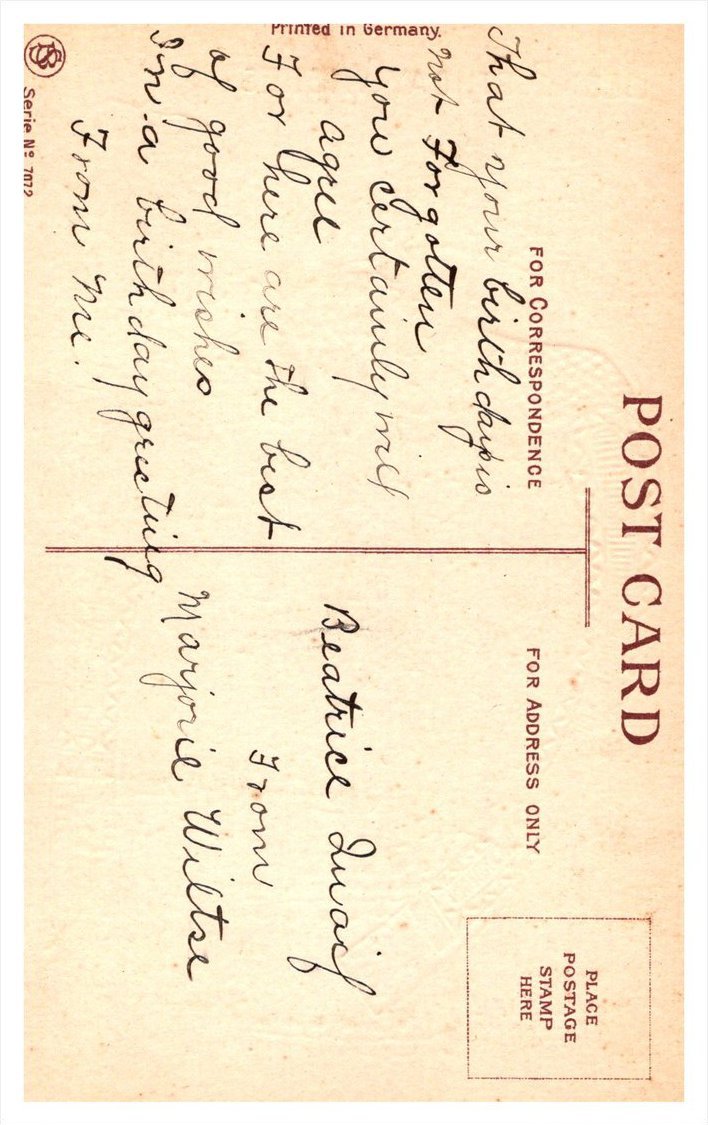 POST CARD
FOR CORRESPONDENCE
FOR ADDRESS ONLY
PLACE
POSTAGE
STAMP
HERE
That your birthday is
not Forgotten
you certainly will
agree
For here are the best
of good wishes
In a birthday greeting
From Me.
Beatrice Quaif
From
Marjorie Wiltse
Printed in Germany.
Serie No 7072